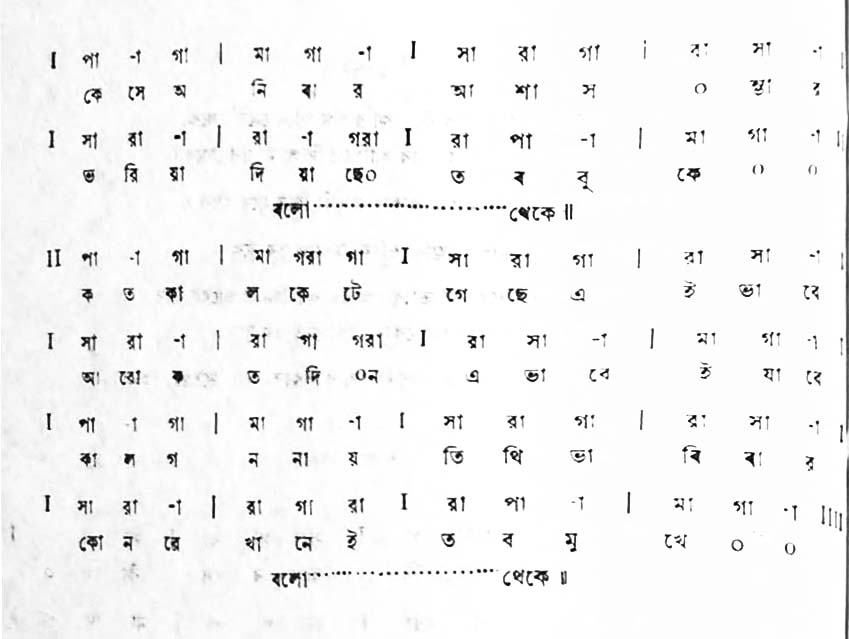 I পা -া গা | মা গা -া I সা রা গা | রা সা -া I
কে সে অ নি বা র আ শা স ০ ম্ভা র
I সা রা -া | রা -া গরা I রা পা -া | মা গা -া II
ভ রি য়া দি য়া ছে০ ত ব বু কে ০ ০
বলো ........................... থেকে ॥
II পা -া গা | মা গরা গা I সা রা গা | রা সা -া I
ক ত কা ল কে টে গে ছে এ ই ভা বে
I সা রা -া | রা গা গরা I রা সা -া | মা গা -া I
আ রো ক ত দি ০ন এ ভা বে ই যা বে
I পা -া গা | মা গা -া I সা রা গা | রা সা -া I
কা ল গ ন না য় তি থি ভা রি বা র
I সা রা -া | রা গা রা I রা পা -া | মা গা -া IIII
কো ন রে খা নে ই ত ব মু খে ০ ০
বলো ........................... থেকে ॥